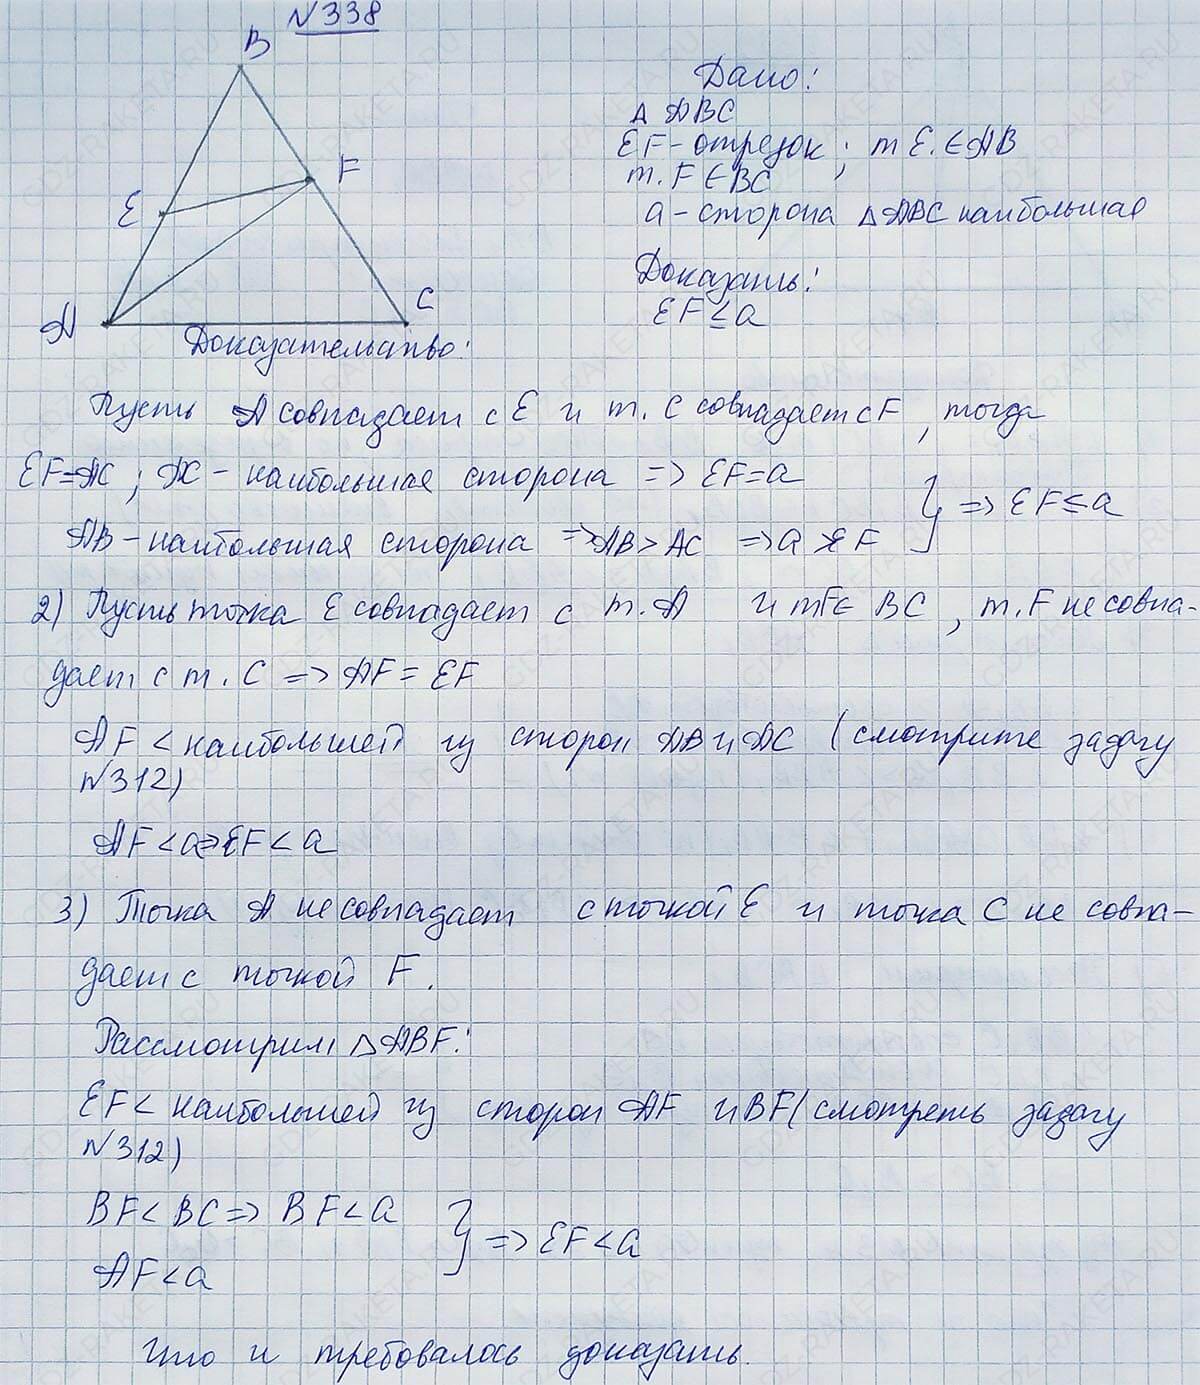 №338
B
F
E
A
C
Дано:
△ ABC
EF - отрезок; т E. ∈ AB
т. F ∈ BC
a - сторона △ABC наибольшая
Доказать:
EF ≤ a
Доказательство:
Пусть A совпадает с E и т. C совпадает с F, тогда
EF=AC; AC - наибольшая сторона => EF=a
AB - наибольшая сторона => AB > AC => a > EF } => EF ≤ a
2) Пусть точка E совпадает с т. A и т F ∈ BC, т. F не совпа-
дает с т. C => AF = EF
AF < наибольшей из сторон AB и AC (смотрите задачу
№312)
AF < a => EF < a
3) Точка A не совпадает с точкой E и точка C не совпа-
дает с точкой F.
Рассмотрим △ABF:
EF < наибольшей из сторон AF и BF (смотреть задачу
№312)
BF < BC => BF < a
AF < a } => EF < a
Что и требовалось доказать.